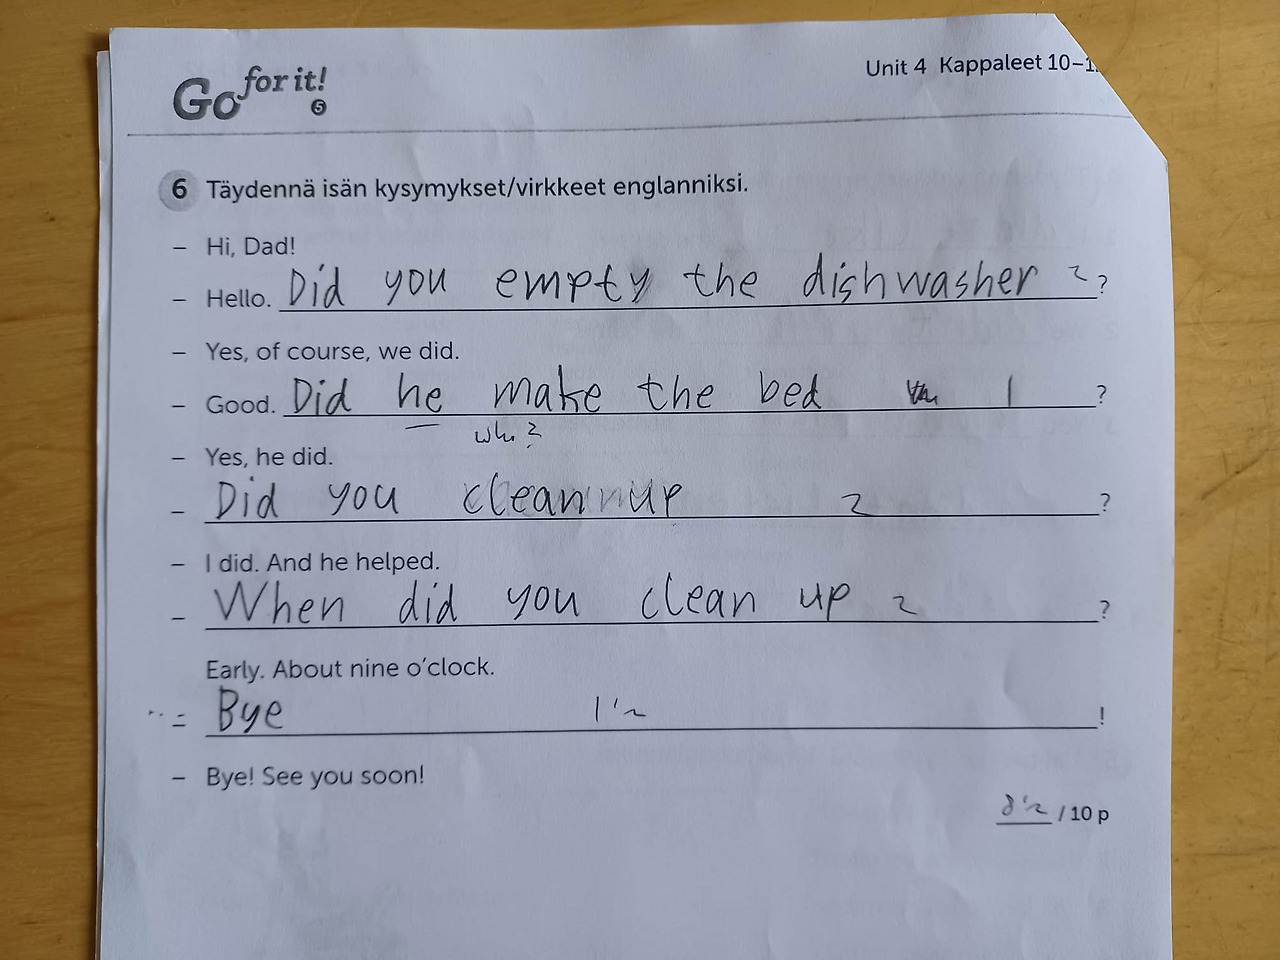 Go for it! 5
Unit 4 Kappaleet 10–1
6 Täydennä isän kysymykset/virkkeet englanniksi.
– Hi, Dad!
– Hello. Did you empty the dishwasher 2 ?
– Yes, of course, we did.
– Good. Did he make the bed 1 ?
who?
– Yes, he did.
– Did you clean up 2 ?
– I did. And he helped.
– When did you clean up 2 ?
Early. About nine o'clock.
– Bye 1½ !
– Bye! See you soon!
8½ / 10 p